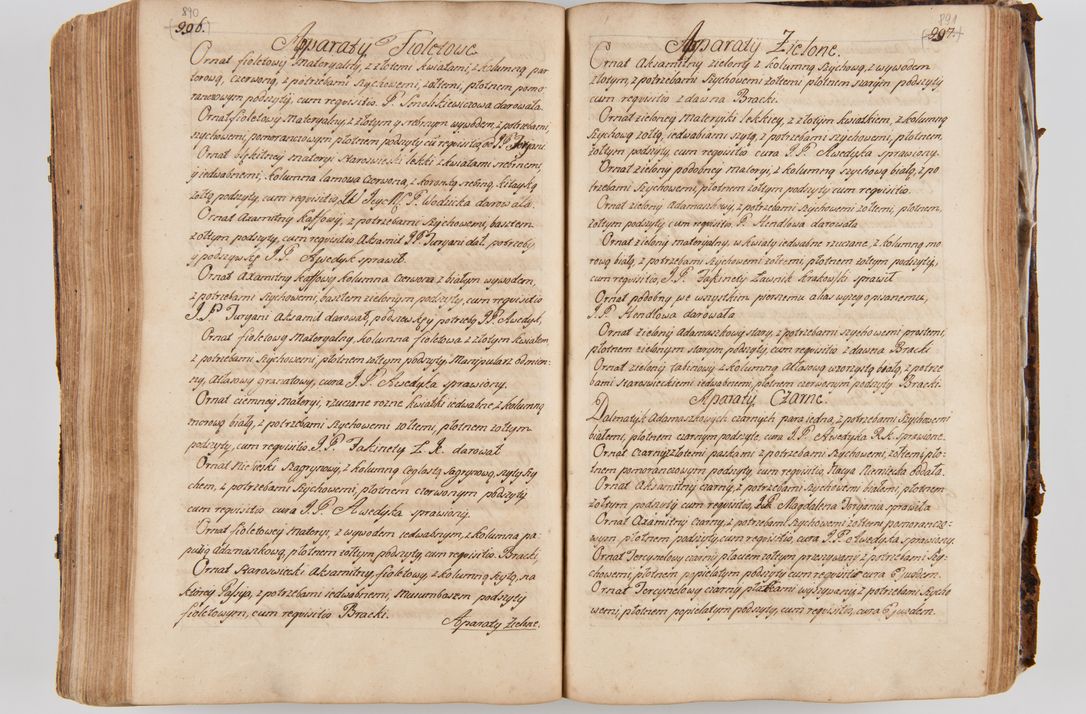 890
296.
Apparaty Fioletowe.
Ornat fioletowy materyalny, z złotemi kwiatami, z kolumną par
terową, czerwoną, z potrzebami szychowemi, żołtemi, płotnem pomo
ranczowym podszyty, cum requisitio. P. Smolikiewiczowa darowała.
Ornat fioletowy materyalny, z złotym y srebrnym wywodem, z potrzebami,
szychowemi, pomoranczowym, płotnem podszyty cu requisitio, J.P. Jurgani
Ornat błękitney materyi Staroswiecki lekki z kwiatami srebrnemi,
y iedwabnemi, kolumna lamowa czerwona, z koronką srebrną, kitayką
zołtą podszyty, cum requisitio, P. Wodzicka darowała.
Ornat Axamitny kaffowy, z potrzebami szychowemi, bawtem
zołtym podszyty, cum requisitio. Axamit J.P. Jurgani dał, potrzeby
y podszywkę J.P. Awedyk sprawił.
Ornat axamitny kaffowy kolumna czerwona z białym wywodem,
z potrzebami szychowemi, bawtem zielonym, podszyty, cum requisitio
J.P. Jurgani aksamit darował, podszewkę y potrzeby J.P. Awedyk,
Ornat fioletową materyalny, kolumna fioletowa z złotym kwiatem,
z potrzebami, szychowemi, płotnem zołtym podszyty, Manipularz odmien-
ny, Atłasowy granatowy, cura J.P. Awedyka sprawiony.
Ornat ciemney materyi, rzucane rozne kwiatki iedwabne z kolumną
morową białą, z potrzebami szychowemi zołtemi, płotnem zołtym
podszyty, cum requisitio J.P. Fakinety Ł. K. darował
Ornat Niebieski szagrynowy, z kolumną Ceglastą sagrynową, szyty szy
chem, z potrzebami szychowemi, płotnem czerwonym podszyty
cum requisitio cura J.P. Awedyka sprawiony.
Ornat fioletowey materyi, z wywodem iedwabnym, z kolumną pa
pużą adamaszkową, płotnem zołtym podszyty, cum requisitio, Bracki,
Ornat Staroswiecki aksamitny, fioletowy, z kolumną szytą, na
ktorey Passya, z potrzebami iedwabnemi, musumbasem podszyty
fioletowym, cum requisitio Bracki.
Aparaty Zielone.
891
297.
Apparaty Zielone.
Ornat Aksamitny zielony z kolumną szychową, z wywodem
złotym, z potrzebami szychowemi żołtemi płotnem szarym podszyty
cum requisitio zdawna Bracki.
Ornat zieloney materyiki lekkiey, z złotym kwiatkiem, z kolumną
szychową żołtą, iedwabiami szytą, z potrzebami szychowemi, płotnem,
żołtym podszyty, cum requisitio cura J.P. Awedyka sprawiony.
Ornat zielony podobney materyi, z kolumną szychową białą, z po
trzebami szychowemi, płotnem zołtym podszyty cum requisitio.
Ornat zielony Adamaszkowy, z potrzebami szychowemi żołtemi, płotnem,
zołtym podszyty cum requisitio P. Hendlowa darowała
Ornat zielony materyalny, w kwiaty iedwabne rzucane, z kolumną mo
rową białą, z potrzebami szychowemi zołtemi, płotnem zołtym podszyty,
cum requisitio, J.P. Fakinety Ławnik Krakowski sprawił
Ornat podobny we wszystkim pierwszemu alias wyzey opisanemu,
J.P. Hendlowa darowała
Ornat zielony Adamaszkowy stary, z potrzebami szychowemi prostemi,
płotnem zielonym starym podszyty, cum requisitio zdawna Bracki
Ornat zielony tabinowy z kolumną Atłasową wzorzystą białą, z potrze
bami staroswieckiemi iedwabnemi, płotnem czerwonym podszyty Bracki.
Aparaty Czarne.
Dalmatyk Adamaszkowych czarnych para iedna, z potrzebami szychowemi
białemi, płotnem czarnym podszyte, cura J.P. Awedyka R.K. sprawione.
Ornat Czarny z złotemi paskami z potrzebami szychowemi, zołtemi, pło-
tnem pomoranczowym podszyty, cum requisitio, Nacya Niemiecka oddała.
Ornat Aksamitny czarny, z potrzebami szychowemi białemi, płotnem
zołtym podszyty cum requisitio, J.P. Magdalena Toryania sprawiła
Ornat Axamitny czarny, z potrzebami szychowemi zołtemi pomoranczo-
wym płotnem podszyty, cum requisitio, cura J.P. Awedyka sprawiony.
Ornat Tercynelowy czarny, płactem zołtym przeszywany z potrzebami szy-
chowemi, płotnem popielatym podszyty cum requisitio cura Ejusdem.
Ornat Tercynelowy czarny płatkami wyszywany, z potrzebami szycho
wemi, płotnem popielatym podszyty, cum requisitio, cura Ejusdem.